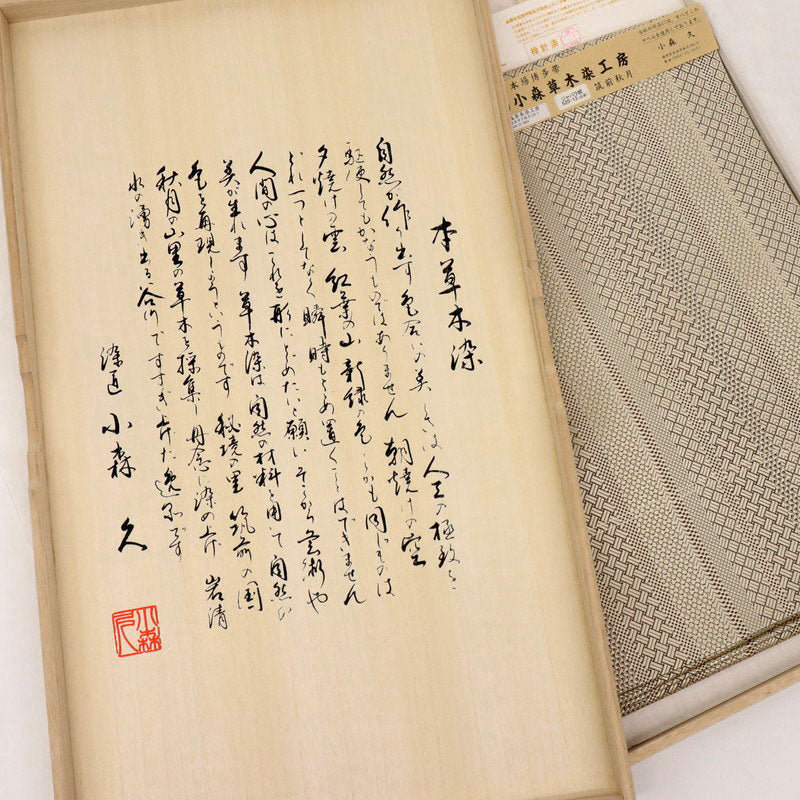 本草木染
自然が作り出す色合いの美しさは人工の極致を
駆使してもかなうものではありません 朝焼けの空
夕焼けの雲 紅葉の山 新緑の色 しかも同じものは
どれ一つとしてなく瞬時もとめ置くことはできません
人間の心はこれを形にとどめたいと願い そこから芸術や
美が生れます 草木染は自然の材料を用いて自然の
色を再現しようというものです 秘境の里 筑前の国
秋月の山里の草木を採集し丹念に染め上げ 岩清
水の湧き出る谷川ですすぎ上げた逸品です
染匠 小森 久
小森久
検針済
小森 久
本場博多帯
小森草木染工房
筑前秋月